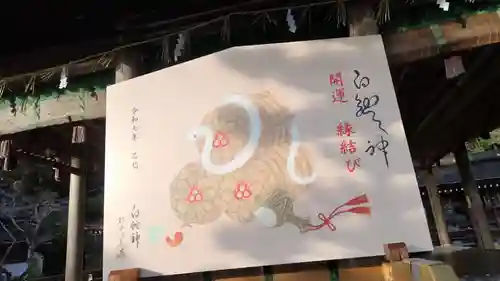 白蛇神
開運
縁結び
令和七年
乙巳
白蛇神